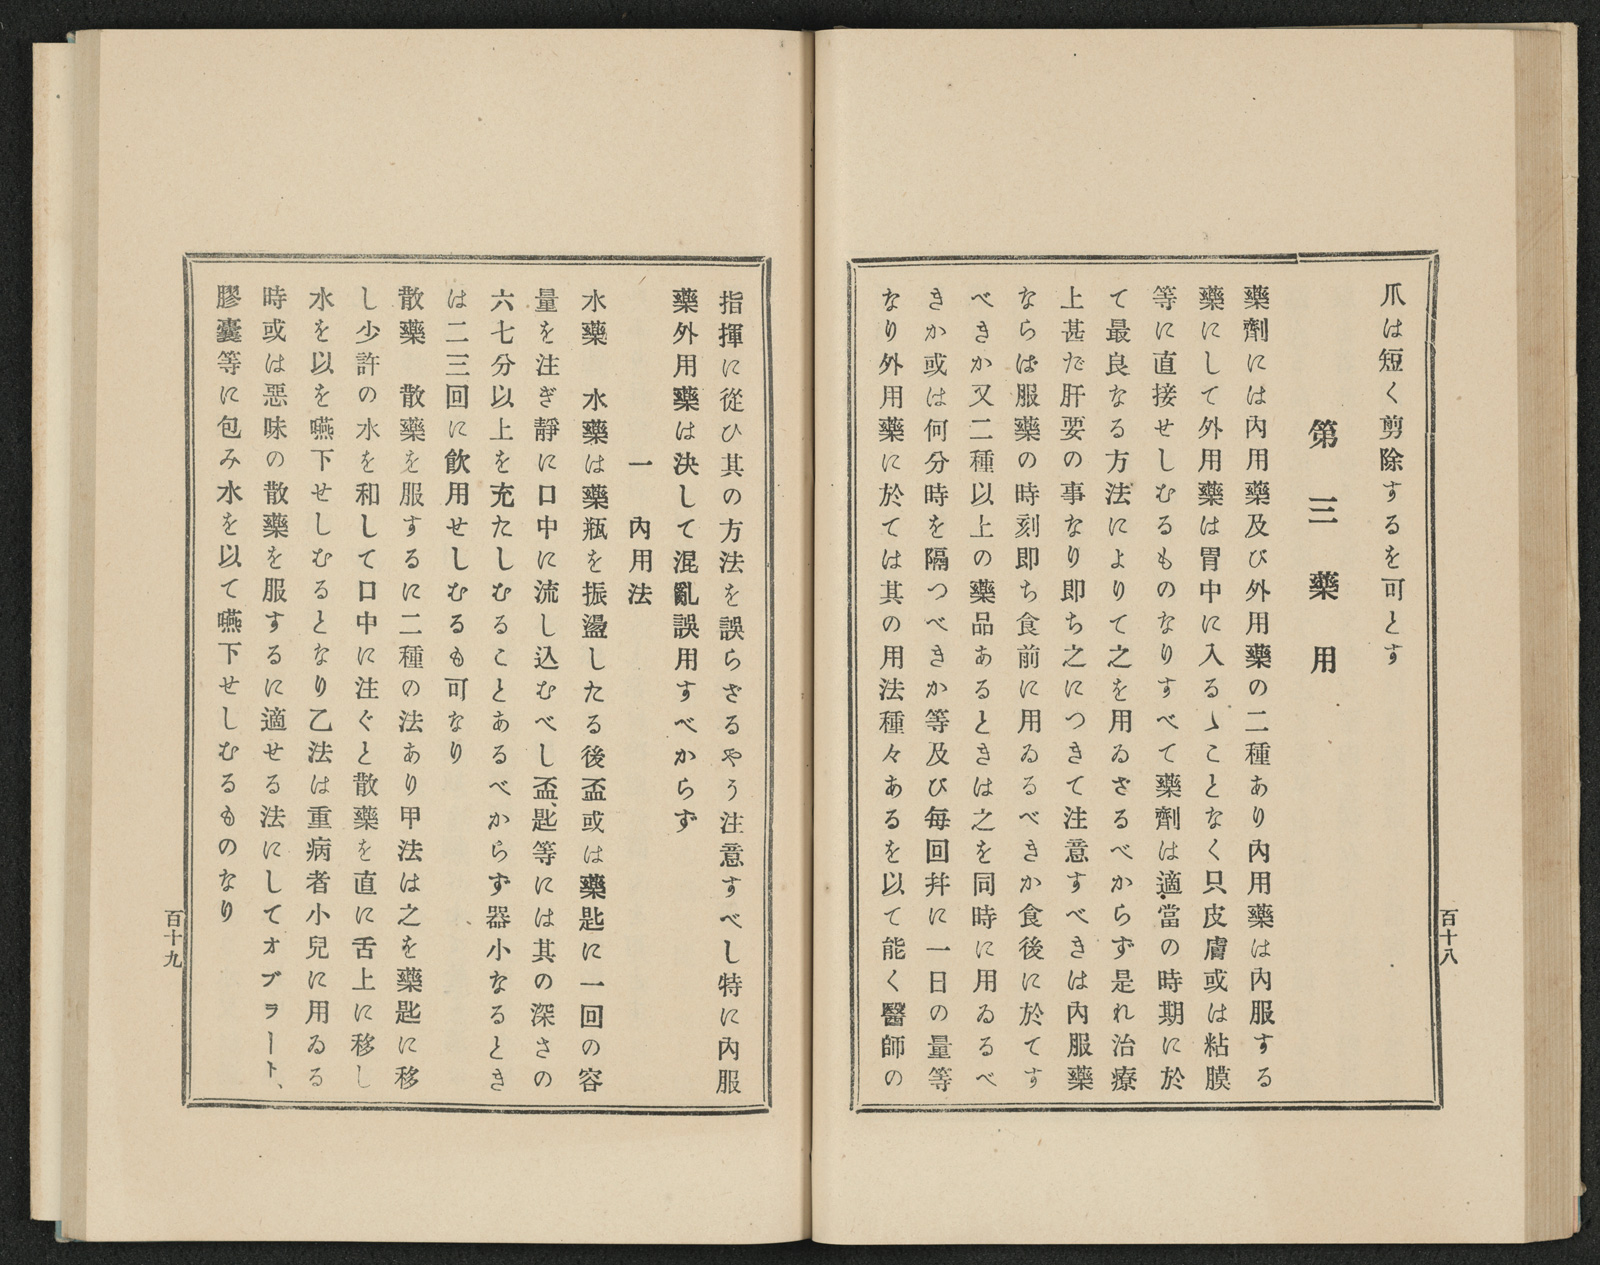 爪は短く剪除するを可とす
第三藥用
藥劑には內用藥及び外用藥の二種あり內用藥は內服する
藥にして外用藥は胃中に入るゝことなく只皮膚或は粘膜
等に直接せしむるものなりすべて藥劑は適當の時期に於
て最良なる方法によりて之を用ゐさるべからず是れ治療
上甚だ肝要の事なり即ち之につきて注意すべきは內服藥
ならば服藥の時刻即ち食前に用ゐるべきか食後に於てす
べきか又二種以上の藥品あるときは之を同時に用ゐるべ
きか或は何分時を隔つべきか等及び每回幷に一日の量等
なり外用藥に於ては其の用法種々あるを以て能く醫師の
百十八
指揮に從ひ其の方法を誤らざるやう注意すべし特に內服
藥外用藥は決して混亂誤用すべからず
一　內用法
水藥　水藥は藥瓶を振盪したる後盃或は藥匙に一回の容
量を注ぎ靜に口中に流し込むべし盃、匙等には其の深さの
六七分以上を充たしむることあるべからず器小なるとき
は二三回に飮用せしむるも可なり
散藥　散藥を服するに二種の法あり甲法は之を藥匙に移
し少許の水を和して口中に注ぐと散藥を直に舌上に移し
水を以を嚥下せしむるとなり乙法は重病者小兒に用ゐる
時或は惡味の散藥を服するに適せる法にしてオブラート、
膠囊等に包み水を以て嚥下せしむるものなり
百十九